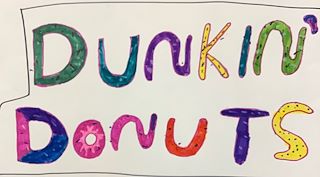 DUNKIN'
DONUTS